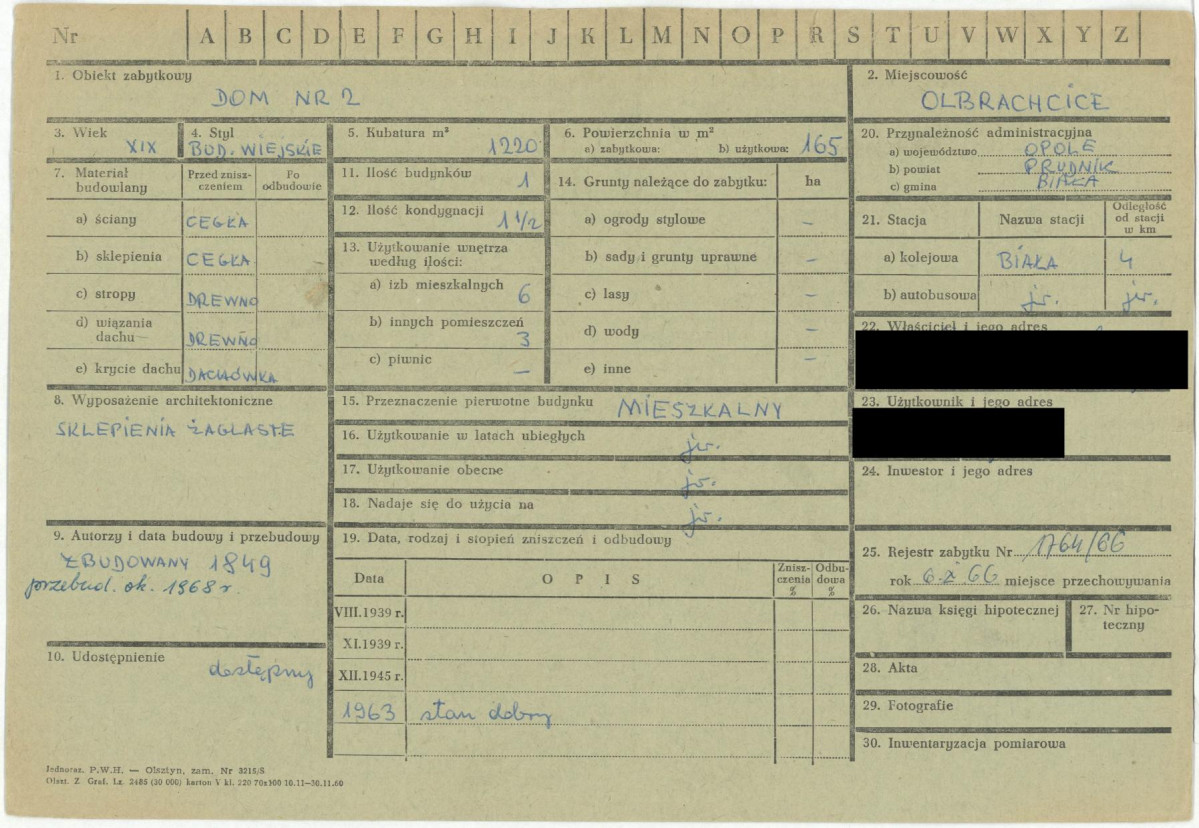 Nr A B C D E F G H I J K L M N O P R S T U V W X Y Z
1. Obiekt zabytkowy
DOM NR 2
2. Miejscowość
OLBRACHCICE
3. Wiek
XIX
4. Styl
BUD. WIEJSKIE
5. Kubatura m³
1220
6. Powierzchnia w m²
a) zabytkowa: b) użytkowa: 165
20. Przynależność administracyjna
a) województwo OPOLE
b) powiat PRUDNIK
c) gmina BIAŁA
7. Materiał budowlany
Przed zniszczeniem
Po odbudowie
a) ściany CEGŁA
b) sklepienia CEGŁA
c) stropy DREWNO
d) wiązania dachu DREWNO
e) krycie dachu DACHÓWKA
11. Ilość budynków
1
12. Ilość kondygnacji
1 1/2
13. Użytkowanie wnętrza według ilości:
a) izb mieszkalnych 6
b) innych pomieszczeń 3
c) piwnic –
14. Grunty należące do zabytku: ha
a) ogrody stylowe –
b) sady i grunty uprawne –
c) lasy –
d) wody –
e) inne –
21. Stacja Nazwa stacji Odległość od stacji w km
a) kolejowa BIAŁA 4
b) autobusowa jw. jw.
22. Właściciel i jego adres
23. Użytkownik i jego adres
24. Inwestor i jego adres
8. Wyposażenie architektoniczne
SKLEPIENIA ŻAGLASTE
15. Przeznaczenie pierwotne budynku MIESZKALNY
16. Użytkowanie w latach ubiegłych jw.
17. Użytkowanie obecne jw.
18. Nadaje się do użycia na jw.
9. Autorzy i data budowy i przebudowy
ZBUDOWANY 1849
przebud. ok. 1968 r.
10. Udostępnienie
dostępny
19. Data, rodzaj i stopień zniszczeń i odbudowy
Data OPIS Zniszczenia % Odbudowa %
VIII.1939 r.
XI.1939 r.
XII.1945 r.
1963 stan dobry
25. Rejestr zabytku Nr 1764/66
rok 6.X.66 miejsce przechowywania
26. Nazwa księgi hipotecznej
27. Nr hipoteczny
28. Akta
29. Fotografie
30. Inwentaryzacja pomiarowa
Jednoraz. P.W.H. — Olsztyn, zam. Nr 3215/S
Olszt. Z. Graf. Lz. 2485 (30 000) karton V kl. 220 70x100 10.11—30.11.60